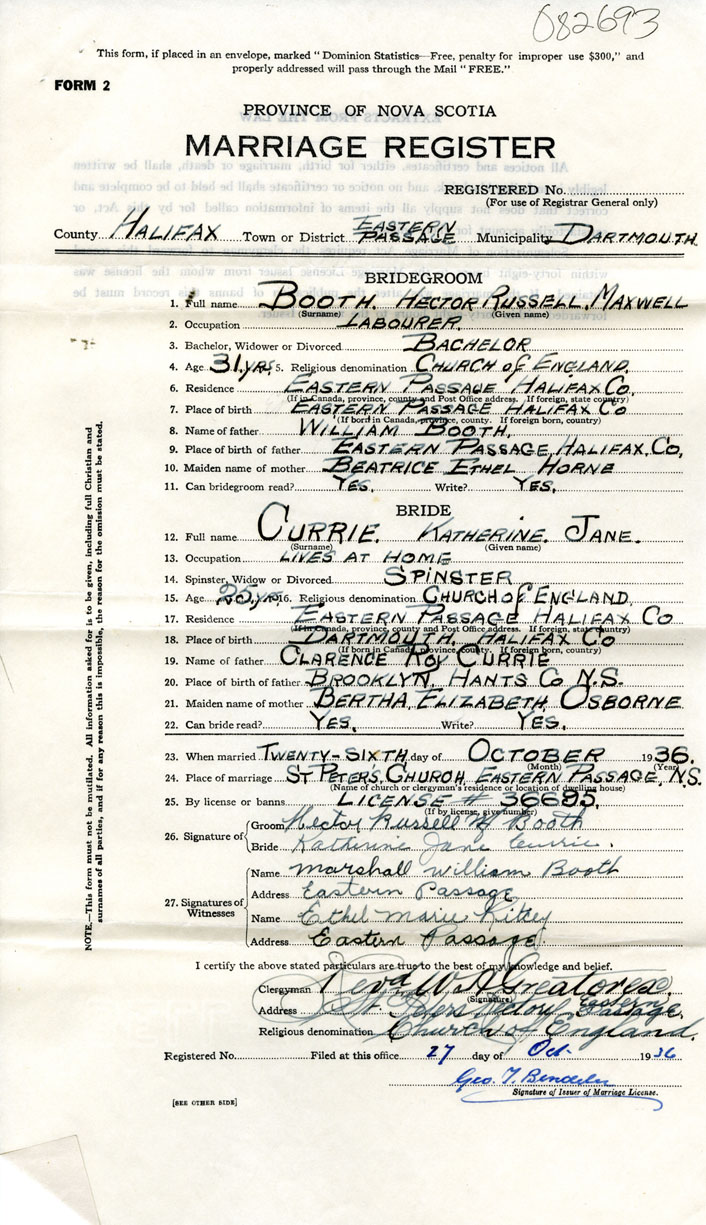 082693
This form, if placed in an envelope, marked "Dominion Statistics—Free, penalty for improper use $300," and
properly addressed will pass through the Mail "FREE."
FORM 2
PROVINCE OF NOVA SCOTIA
MARRIAGE REGISTER
REGISTERED No.
(For use of Registrar General only)
County HALIFAX Town or District EASTERN PASSAGE Municipality DARTMOUTH
BRIDEGROOM
1. Full name BOOTH, HECTOR RUSSELL, MAXWELL
(Surname) (Given name)
2. Occupation LABOURER.
3. Bachelor, Widower or Divorced BACHELOR
4. Age 31 yrs 5. Religious denomination CHURCH OF ENGLAND.
6. Residence EASTERN PASSAGE HALIFAX Co.
(If in Canada, province, county and Post Office address. If foreign, state country)
7. Place of birth EASTERN PASSAGE HALIFAX Co
(If born in Canada, province, county. If foreign born, country)
8. Name of father WILLIAM BOOTH.
9. Place of birth of father EASTERN PASSAGE, HALIFAX, Co,
10. Maiden name of mother BEATRICE ETHEL HORNE
11. Can bridegroom read? YES. Write? YES.
BRIDE
12. Full name CURRIE. KATHERINE. JANE.
(Surname) (Given name)
13. Occupation LIVES AT HOME
14. Spinster, Widow or Divorced SPINSTER
15. Age 25 yrs 16. Religious denomination CHURCH OF ENGLAND.
17. Residence EASTERN PASSAGE HALIFAX Co
(If in Canada, province, county and Post Office address. If foreign, state country)
18. Place of birth DARTMOUTH, HALIFAX Co
(If born in Canada, province, county. If foreign born, country)
19. Name of father CLARENCE ROY CURRIE
20. Place of birth of father BROOKLYN, HANTS Co N.S.
21. Maiden name of mother BERTHA, ELIZABETH, OSBORNE
22. Can bride read? YES. Write? YES.
23. When married TWENTY-SIXTH day of OCTOBER 1936.
(Month) (Year)
24. Place of marriage ST PETER'S, CHURCH, EASTERN PASSAGE, N.S.
(Name of church or clergyman's residence or location of dwelling house)
25. By license or banns LICENSE # 36695.
(If by license, give number)
26. Signature of Groom Hector Russell M Booth
Bride Katherine Jane Currie.
27. Signatures of Witnesses Name Marshall William Booth
Address Eastern Passage
Name Ethel Marie
Address Eastern Passage
I certify the above stated particulars are true to the best of my knowledge and belief.
Clergyman Revd W. A. Greatorex
(Signature)
Address St. Peters Eastern Passage.
Religious denomination Church of England.
Registered No. Filed at this office 27 day of Oct 1936
Geo. T.
Signature of Issuer of Marriage License.
[SEE OTHER SIDE]
NOTE.—This form must not be mutilated. All information asked for is to be given, including full Christian and
surnames of all parties, and if for any reason this is impossible, the reason for the omission must be stated.